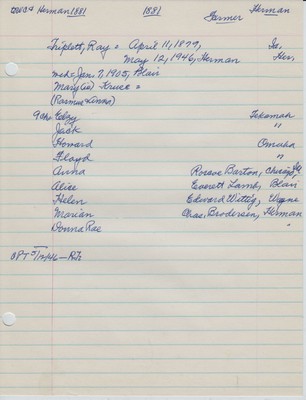 Herman 1881 1881 Farmer Herman
Triplett, Ray = April 11, 1879, Ia,
May 12, 1946, Herman Her,
med = Jan. 7, 1905, Blair
Mary (w) Kruse =
(Rasmus = Anna)
9 Ch = Elzy Tekamah
Jack "
Howard Omaha
Floyd "
Anna Roscoe Barton, Chicago,
Alice Everett Lamb, Blair
Helen Edward Wittig, Wayne
Marian Chas. Brodersen, Herman
Donna Rae "
OPT 5/12/46 —